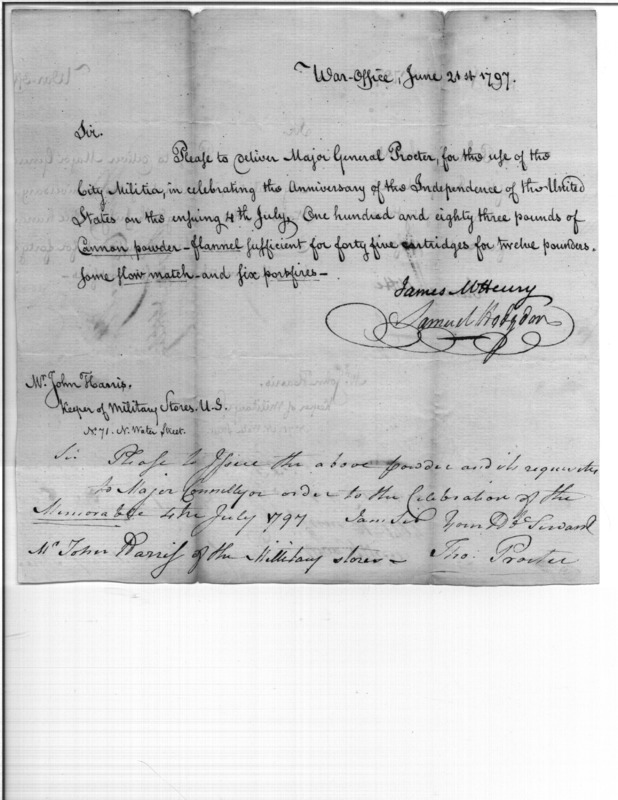 War-Office, June 21st 1797.
Sir.
Please to deliver Major General Procter, for the use of the
City Militia, in celebrating the Anniversary of the Independence of the United
States on the ensuing 4th July, One hundred and eighty three pounds of
Cannon powder - flannel sufficient for forty five cartridges for twelve pounders.
some slow match - and six portfires -
James McHenry
Samuel Hodgdon
Mr. John Harris.
Keeper of Military Stores. U.S.
No. 71. N. Water Street.
Sir Please to Issue the above powder and its requisites
to Major Connelly or order to the Celebration of the
Memorable 4th July 1797 I am Sir Your Servand
Mr John Harriss of the Millitary stores - Tho: Procter